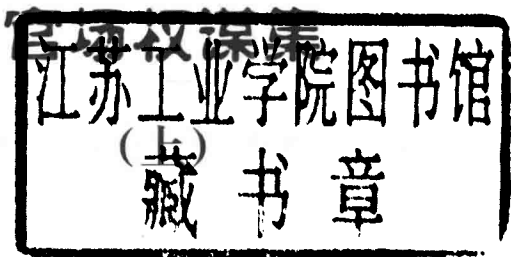 官场权谋集
江苏工业学院图书馆
(上)
藏书章